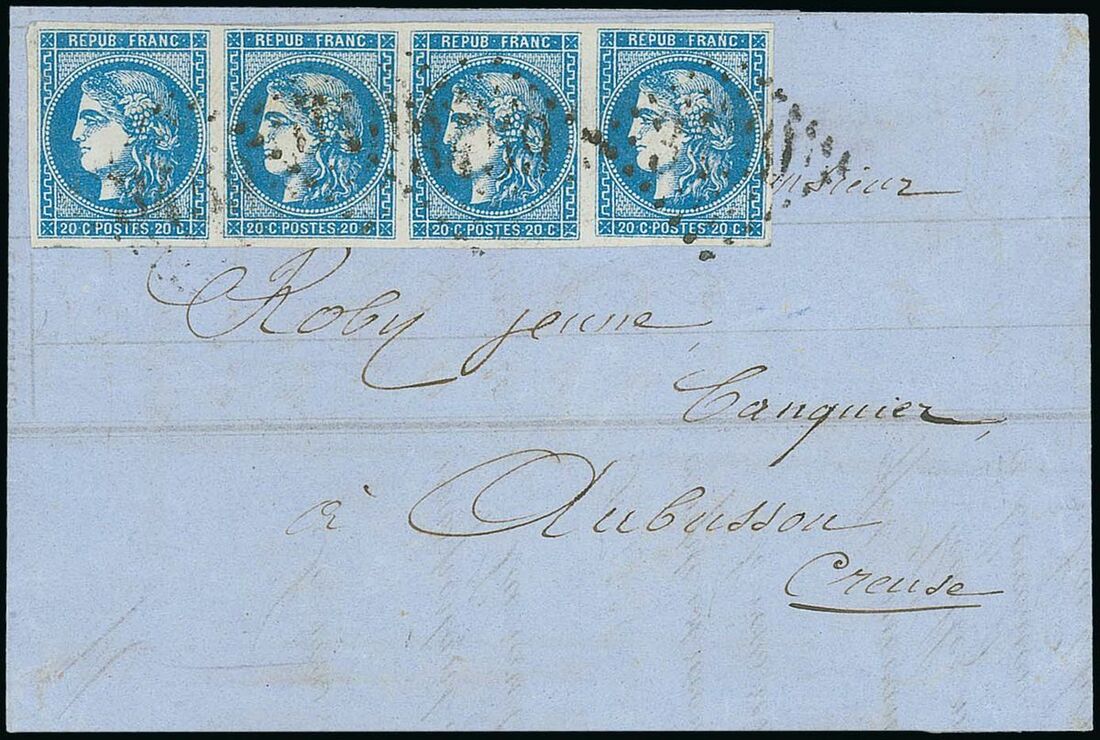 REPUB·FRANC REPUB·FRANC REPUB·FRANC REPUB·FRANC
20 C·POSTES·20 C· 20 C·POSTES·20 C 20 C·POSTES·20 C 20 C·POSTES·20 C·
Monsieur
Roby jeune,
banquier,
à Aubusson
Creuse